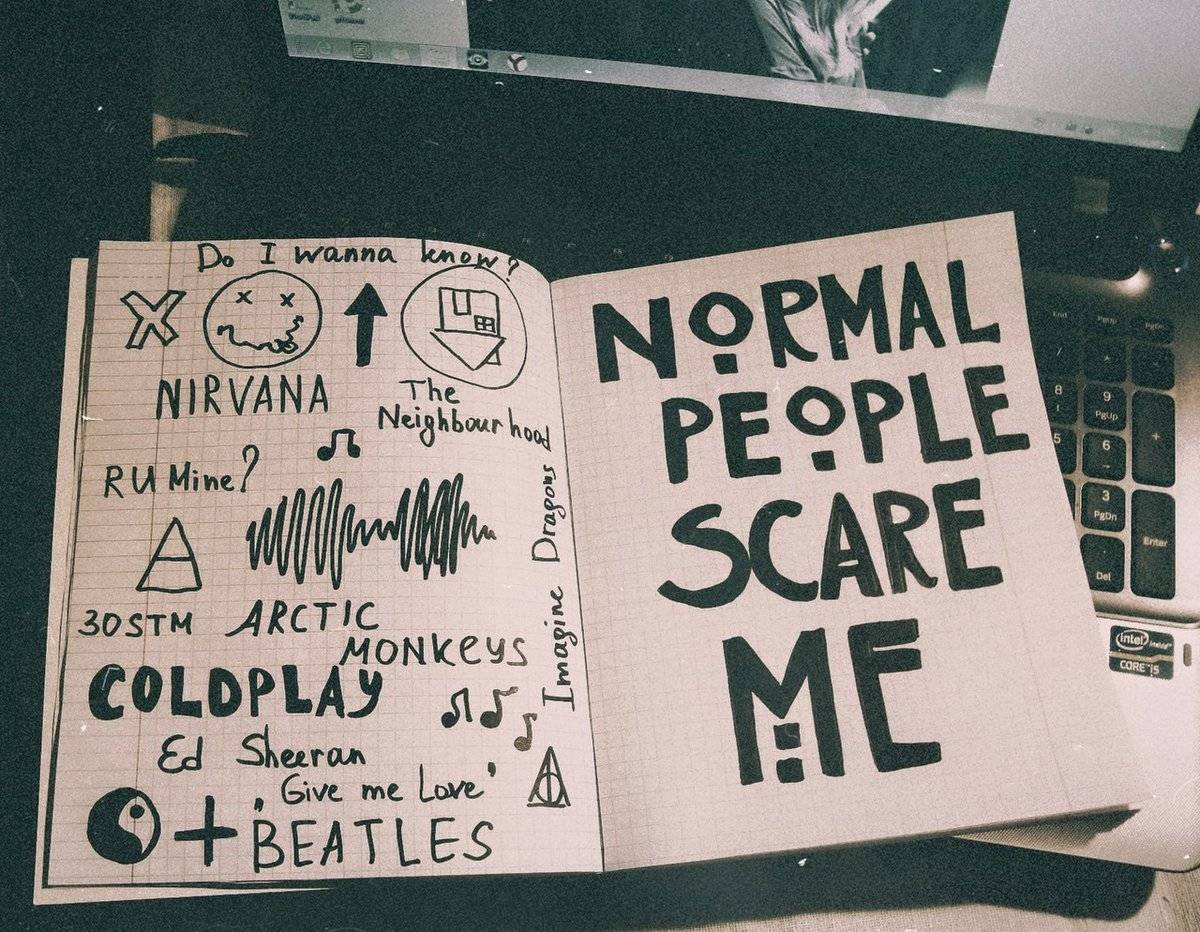 Do I wanna know?
X
NIRVANA
The
Neighbourhood
R U Mine?
30STM
ARCTIC
MONKEYS
Imagine Dragons
COLDPLAY
Ed Sheeran
, Give me Love'
+
BEATLES
NORMAL
PEOPLE
SCARE
ME
End
PgUp
PgDn
*
8
9
PgUp
+
5
6
3
PgDn
Enter
Del
intel inside
CORE i5